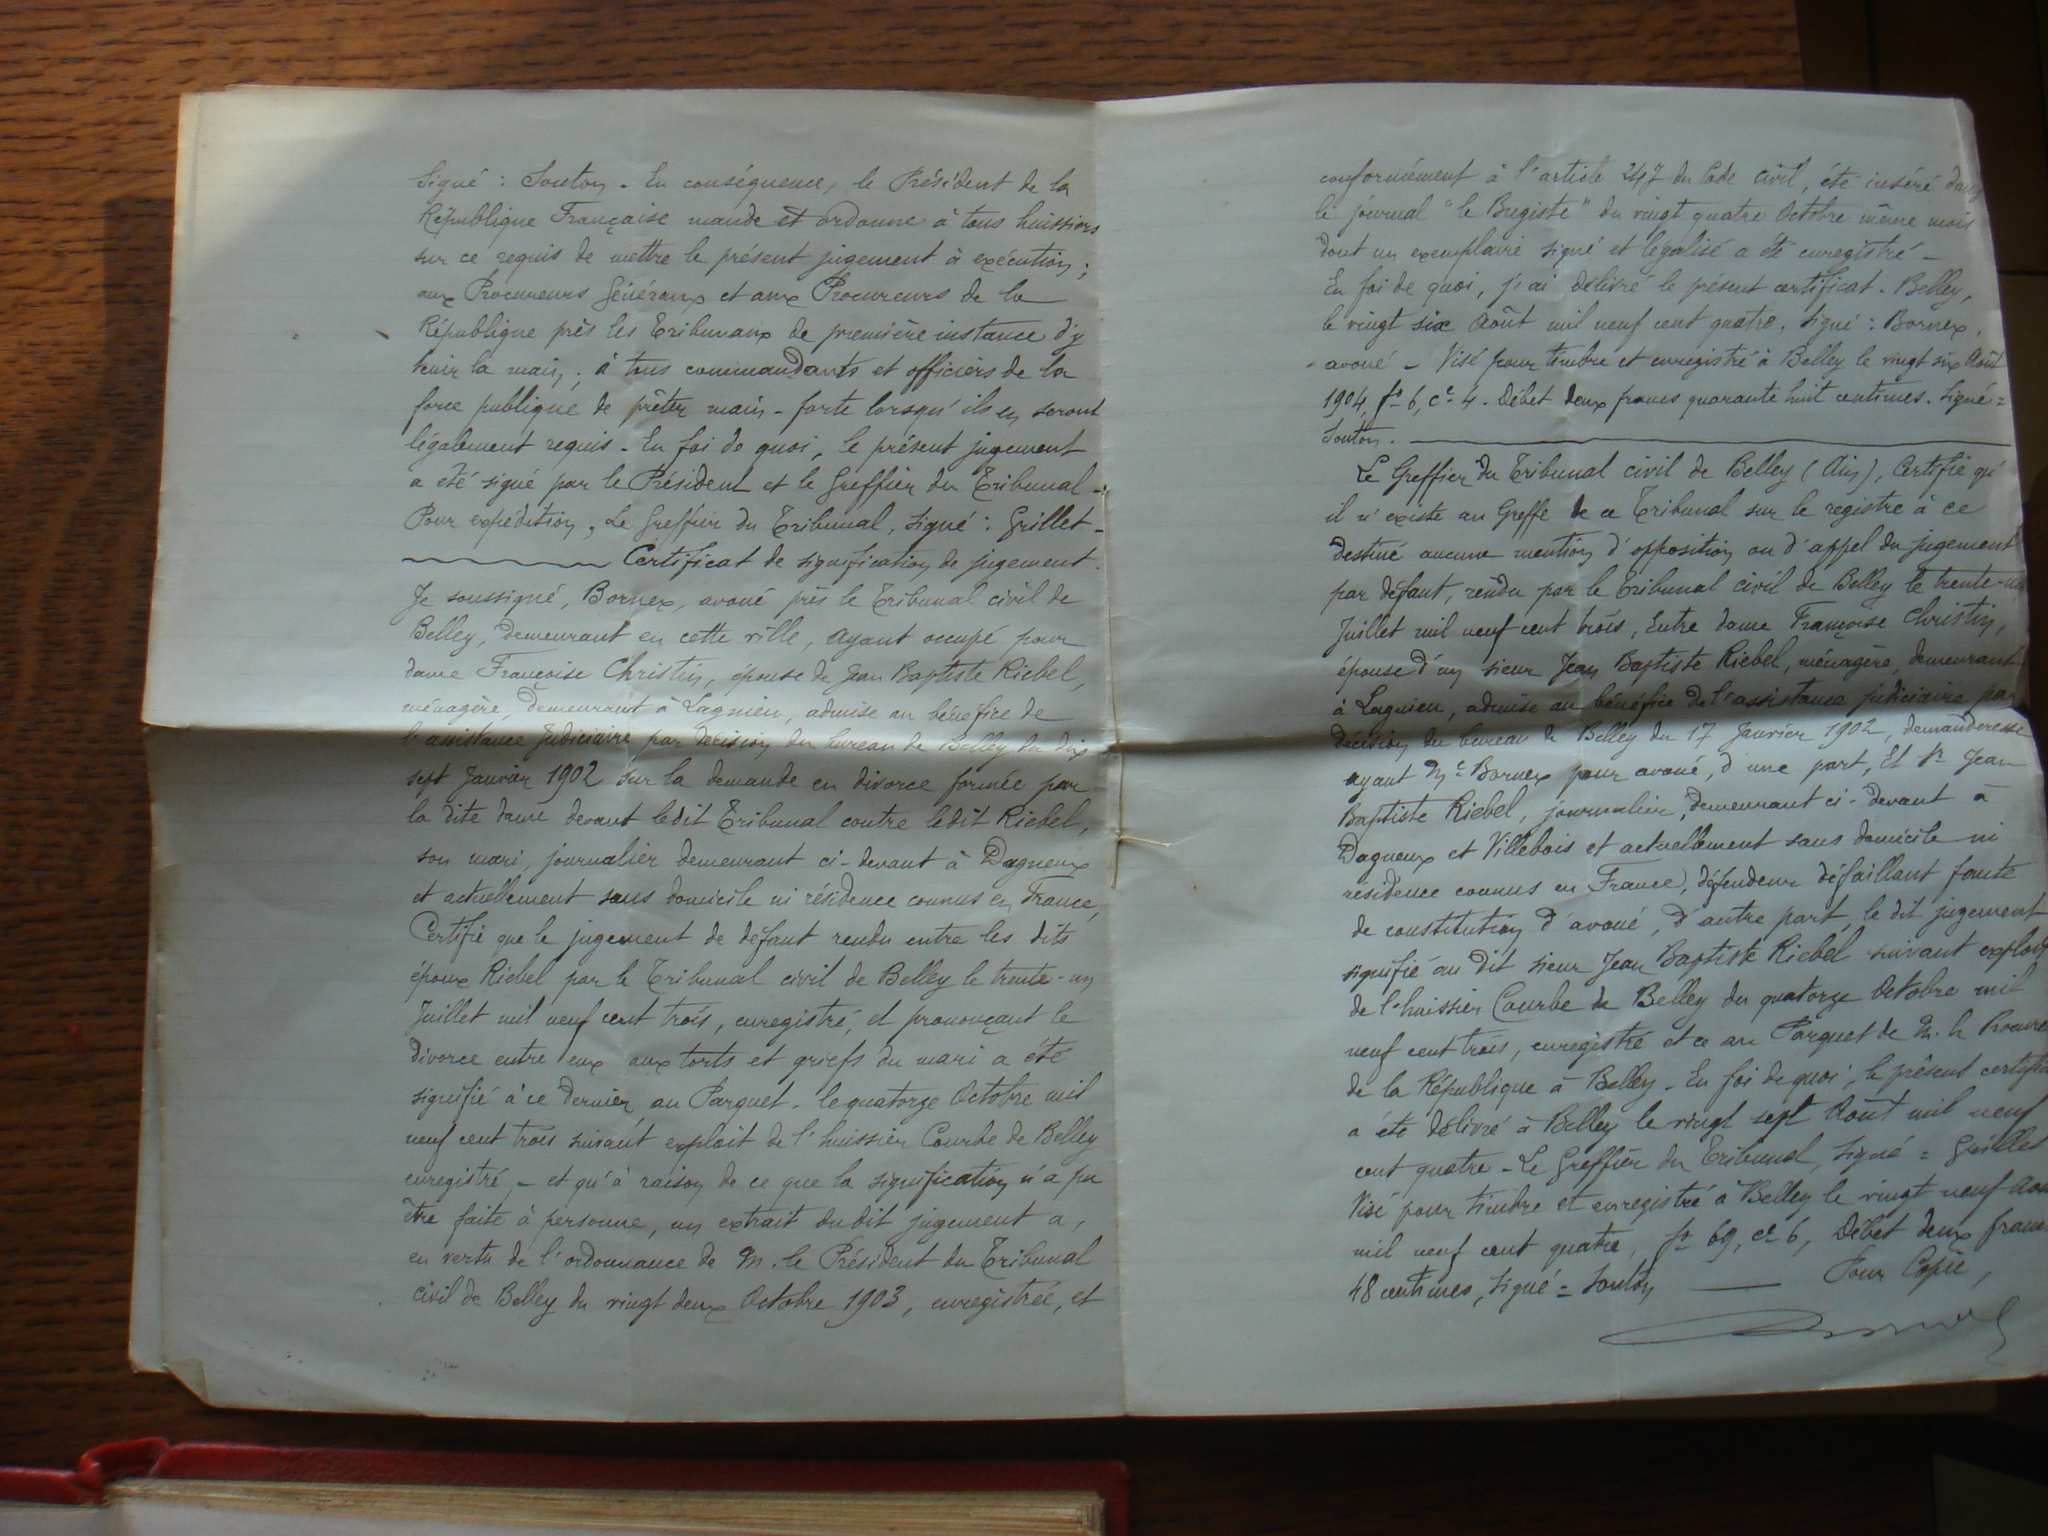 Signé : Souton. En conséquence, le Président de la
République Française mande et ordonne à tous huissiers
sur ce requis de mettre le présent jugement à exécution ;
aux Procureurs Généraux et aux Procureurs de la
République près les Tribunaux de première instance d'y
tenir la main ; à tous commandants et officiers de la
force publique de prêter main-forte lorsqu'ils en seront
légalement requis. En foi de quoi, le présent jugement
a été signé par le Président et le Greffier du Tribunal.
Pour expédition, Le Greffier du Tribunal, signé : Grillet.
Certificat de signification de jugement.
Je soussigné, Bornex, avoué près le Tribunal civil de
Belley, demeurant en cette ville, ayant occupé pour
dame Françoise Christin, épouse de Jean Baptiste Riebel,
ménagère, demeurant à Lagnieu, admise au bénéfice de
l'assistance judiciaire par décision du bureau de Belley du dix
sept Janvier 1902 sur la demande en divorce formée par
la dite dame devant ledit Tribunal contre ledit Riebel,
son mari, journalier demeurant ci-devant à Dagneux
et actuellement sans domicile ni résidence connus en France,
Certifie que le jugement de défaut rendu entre les dits
époux Riebel par le Tribunal civil de Belley le trente-un
Juillet mil neuf cent trois, enregistré, et prononçant le
divorce entre eux aux torts et griefs du mari a été
signifié à ce dernier au Parquet. le quatorze Octobre mil
neuf cent trois suivant exploit de l'huissier Courbe de Belley
enregistré, - et qu'à raison de ce que la signification n'a pu
être faite à personne, un extrait dudit jugement a,
en vertu de l'ordonnance de M. le Président du Tribunal
civil de Belley du vingt deux Octobre 1903, enregistrée, et
conformément à l'article 247 du Code civil, été inséré dans
le journal "le Bugiste" du vingt quatre Octobre même mois
dont un exemplaire signé et légalisé a été enregistré -
En foi de quoi, j'ai délivré le présent certificat. Belley,
le vingt six Août mil neuf cent quatre. Signé : Bornex.
avoué - Visé pour timbre et enregistré à Belley le vingt six Août
1904, f° 6, c° 4. Débet deux francs quarante huit centimes. Signé =
Souton.
Le Greffier du Tribunal civil de Belley (Ain), Certifie qu'
il n'existe au Greffe de ce Tribunal sur le registre à ce
destiné aucune mention d'opposition ou d'appel du jugement
par défaut, rendu par le Tribunal civil de Belley le trente-un
Juillet mil neuf cent trois, Entre dame Françoise Christin,
épouse d'un sieur Jean Baptiste Riebel, ménagère, demeurant
à Lagnieu, admise au bénéfice de l'assistance judiciaire par
décision du bureau de Belley du 17 Janvier 1902, demanderesse
ayant Me Bornex pour avoué, d'une part, Et Sr Jean
Baptiste Riebel, journalier, demeurant ci-devant à
Dagneux et Villebois et actuellement sans domicile ni
résidence connus en France, défendeur défaillant faute
de constitution d'avoué, d'autre part, le dit jugement
signifié au dit sieur Jean Baptiste Riebel suivant exploit
de l'huissier Courbe de Belley du quatorze Octobre mil
neuf cent trois, enregistré et ce au Parquet de M. le Procure
de la République à Belley. En foi de quoi, le présent certifi
a été délivré à Belley le vingt sept Août mil neuf
cent quatre - Le Greffier du Tribunal, signé = Grillet
Visé pour timbre et enregistré à Belley le vingt neuf Aoû
mil neuf cent quatre, f° 69, c° 6, Débet deux francs
48 centimes, signé = Souton Pour Copie,